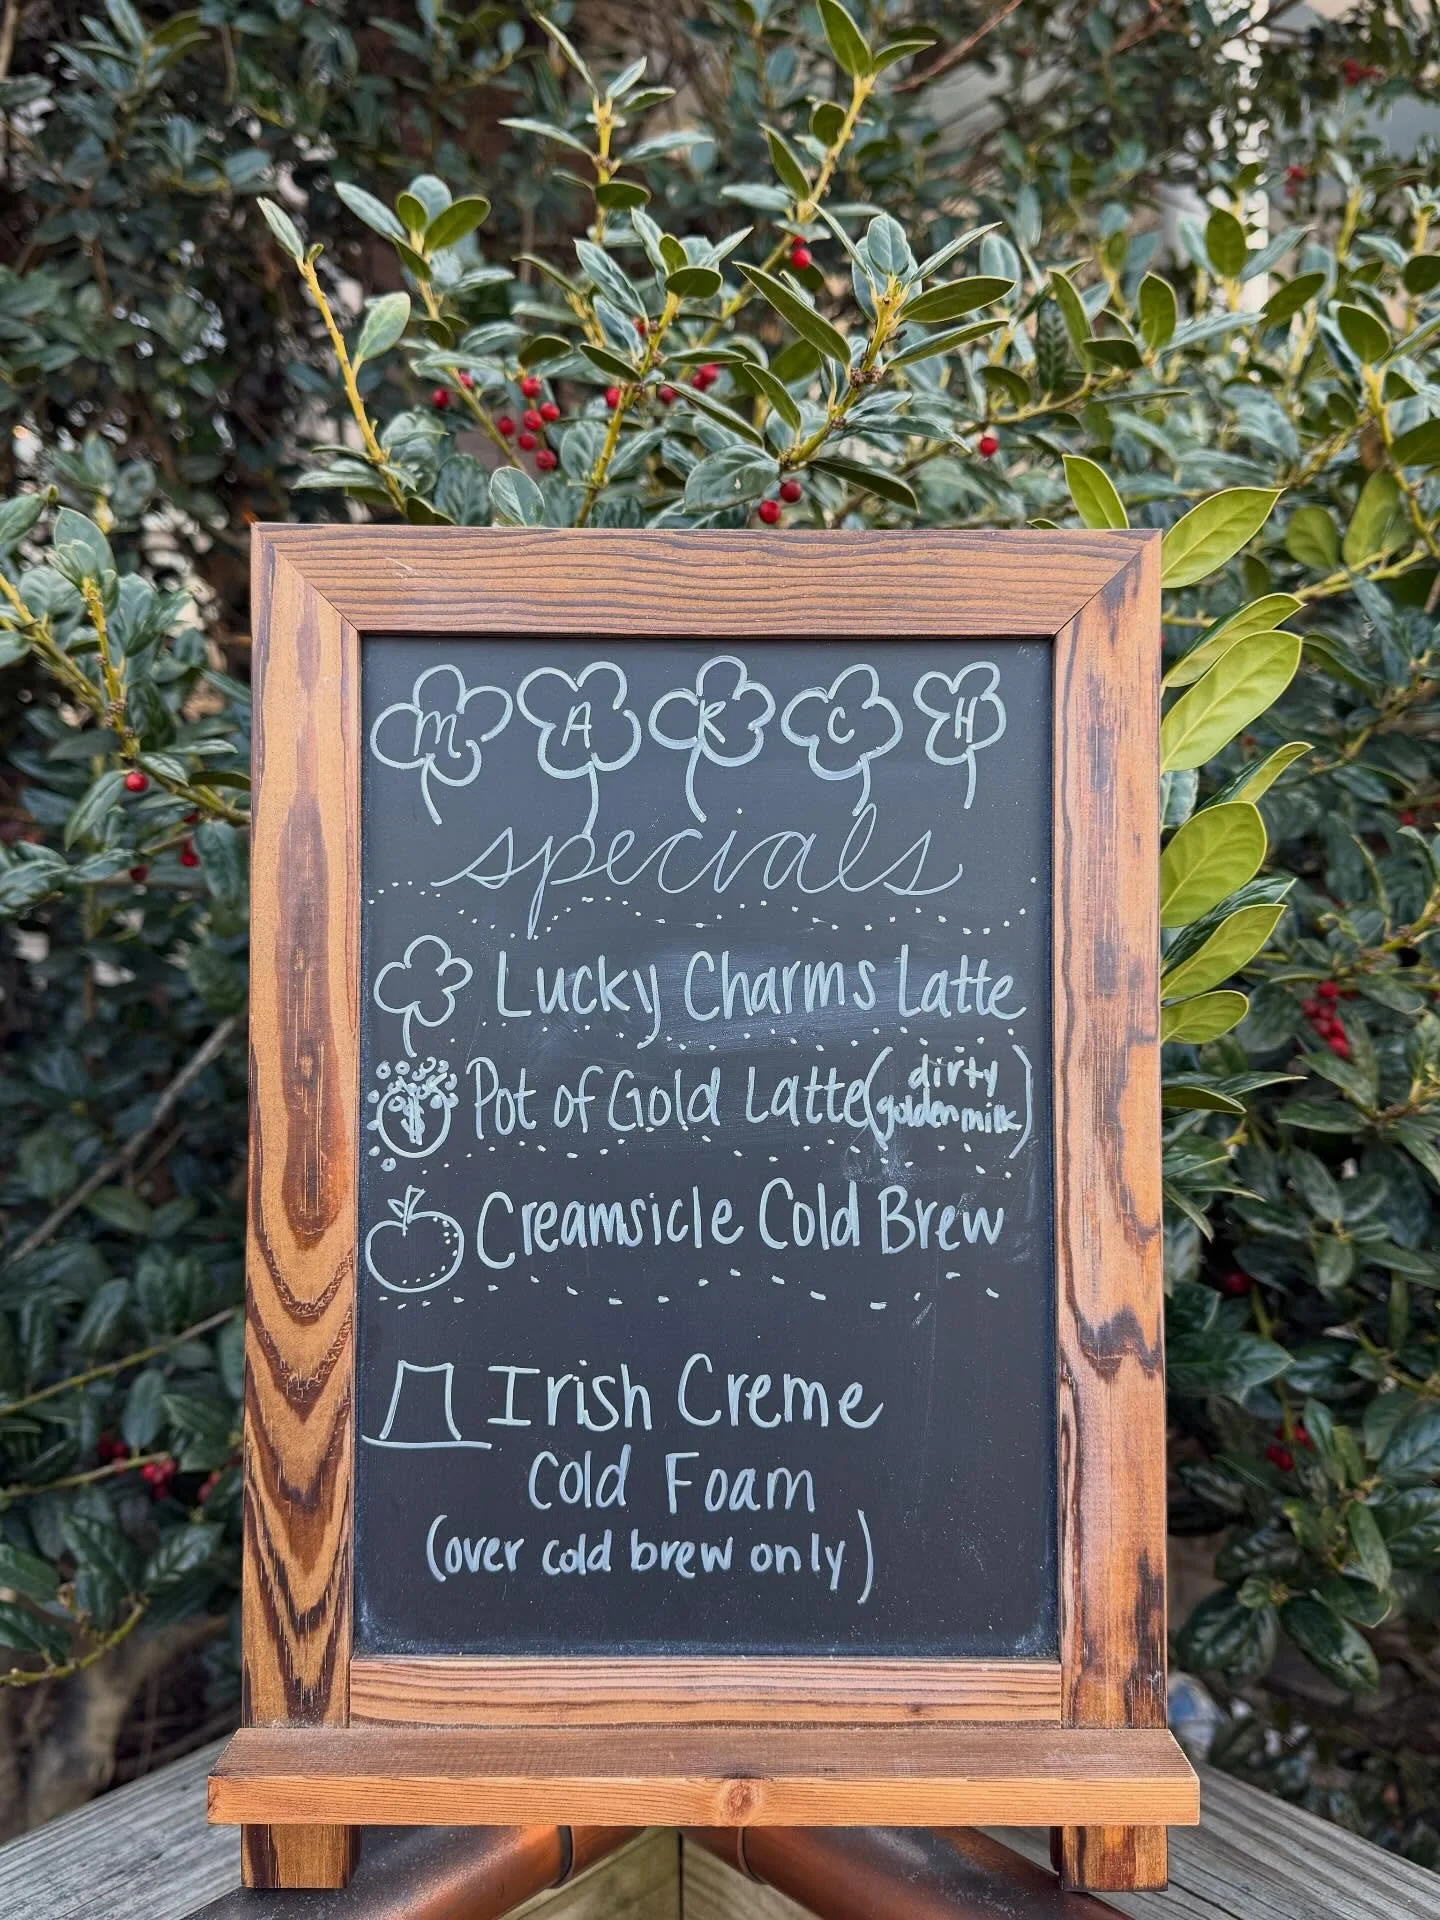 MARCH
specials
Lucky Charms Latte
Pot of Gold Latte (dirty golden milk)
Creamsicle Cold Brew
Irish Creme
Cold Foam
(over cold brew only)